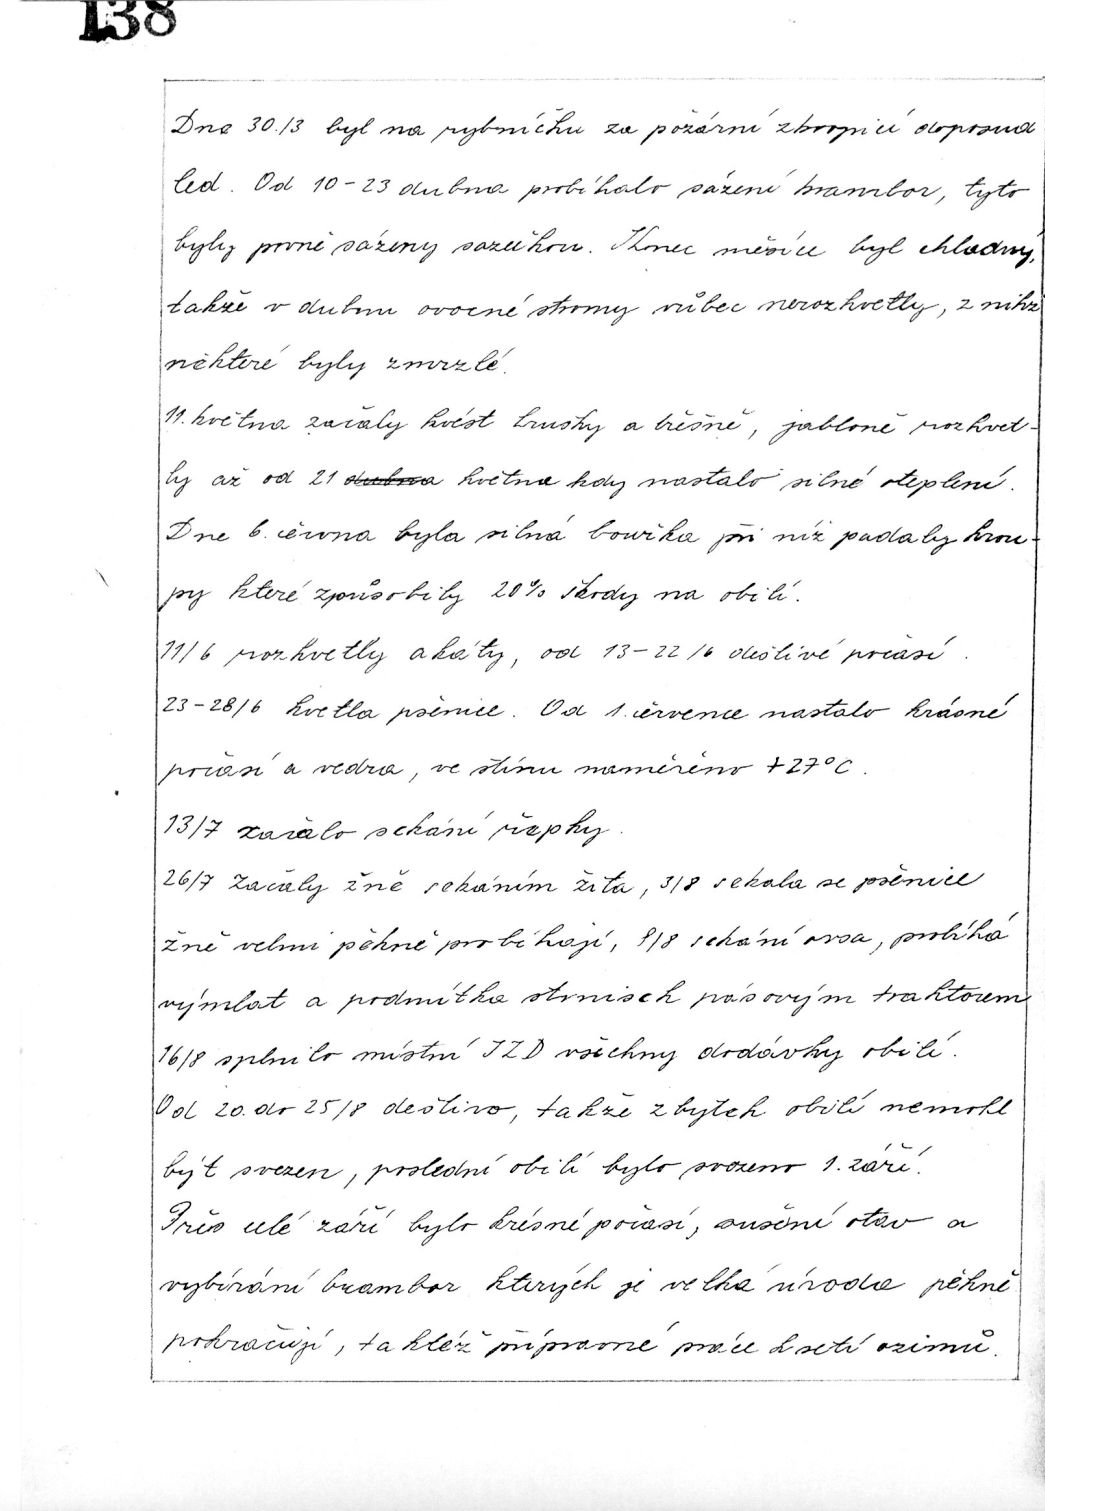 138
Dne 30./3 byl na rybníčku za požární zbrojnicí doposud
led. Od 10-23 dubna probíhalo sázení brambor, tyto
byly prvně sázeny sazečkou. Konec měsíce byl chladný,
takže v dubnu ovocné stromy vůbec nerozkvetly, z nihž
některé byly zmrzlé.
11. května začaly kvést hrušky a třěšně, jabloně rozkvet-
ly až od 21 dubna května kdy nastalo silné oteplení.
Dne 6. června byla silná bouřka při níž padaly krou-
py které způsobily 20% škody na obilí.
11/6 rozkvetly akáty, od 13-22/6 deštivé počasí.
23-28/6 kvetla pšenice. Od 1. července nastalo krásné
počasí a vedra, ve stínu naměřěno +27°C.
13/7 začalo sekání řepky.
26/7 Začaly žně sekáním žita, 3/8 sekala se pšenice
žně velmi pěkně probíhají, 9/8 sekání ovsa, probíhá
výmlat a podmítka strnisek pásovým traktorem
16/8 splnilo místní JZD všechny dodávky obilí.
Od 20. do 25/8 deštivo, takže zbytek obilí nemohl
být svezen, poslední obilí bylo svozeno 1. září.
Přes celé září bylo krásné počasí, sušení otav a
vybírání brambor kterých je velká úroda pěkně
pokračují, taktéž přípravné práce k setí ozimů.